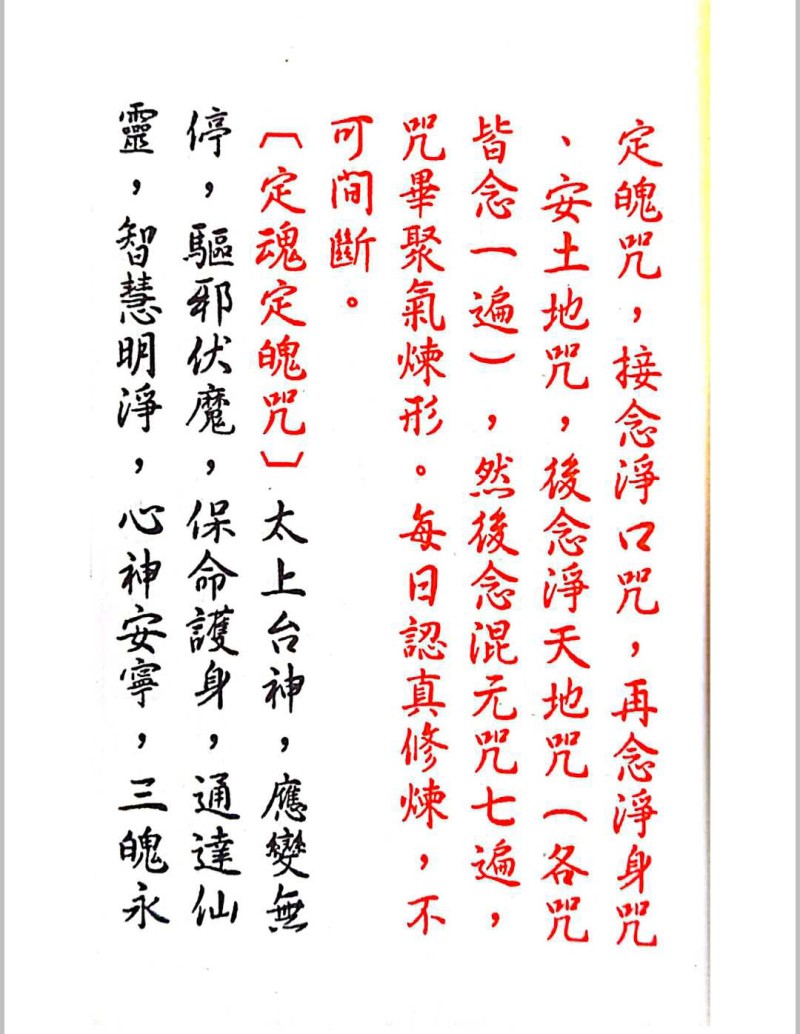 定魄咒，接念淨口咒，再念淨身咒
、安土地咒，後念淨天地咒（各咒
皆念一遍），然後念混元咒七遍，
咒畢聚氣煉形。每日認真修煉，不
可間斷。
〔定魂定魄咒〕太上台神，應變無
停，驅邪伏魔，保命護身，通達仙
靈，智慧明淨，心神安寧，三魄永